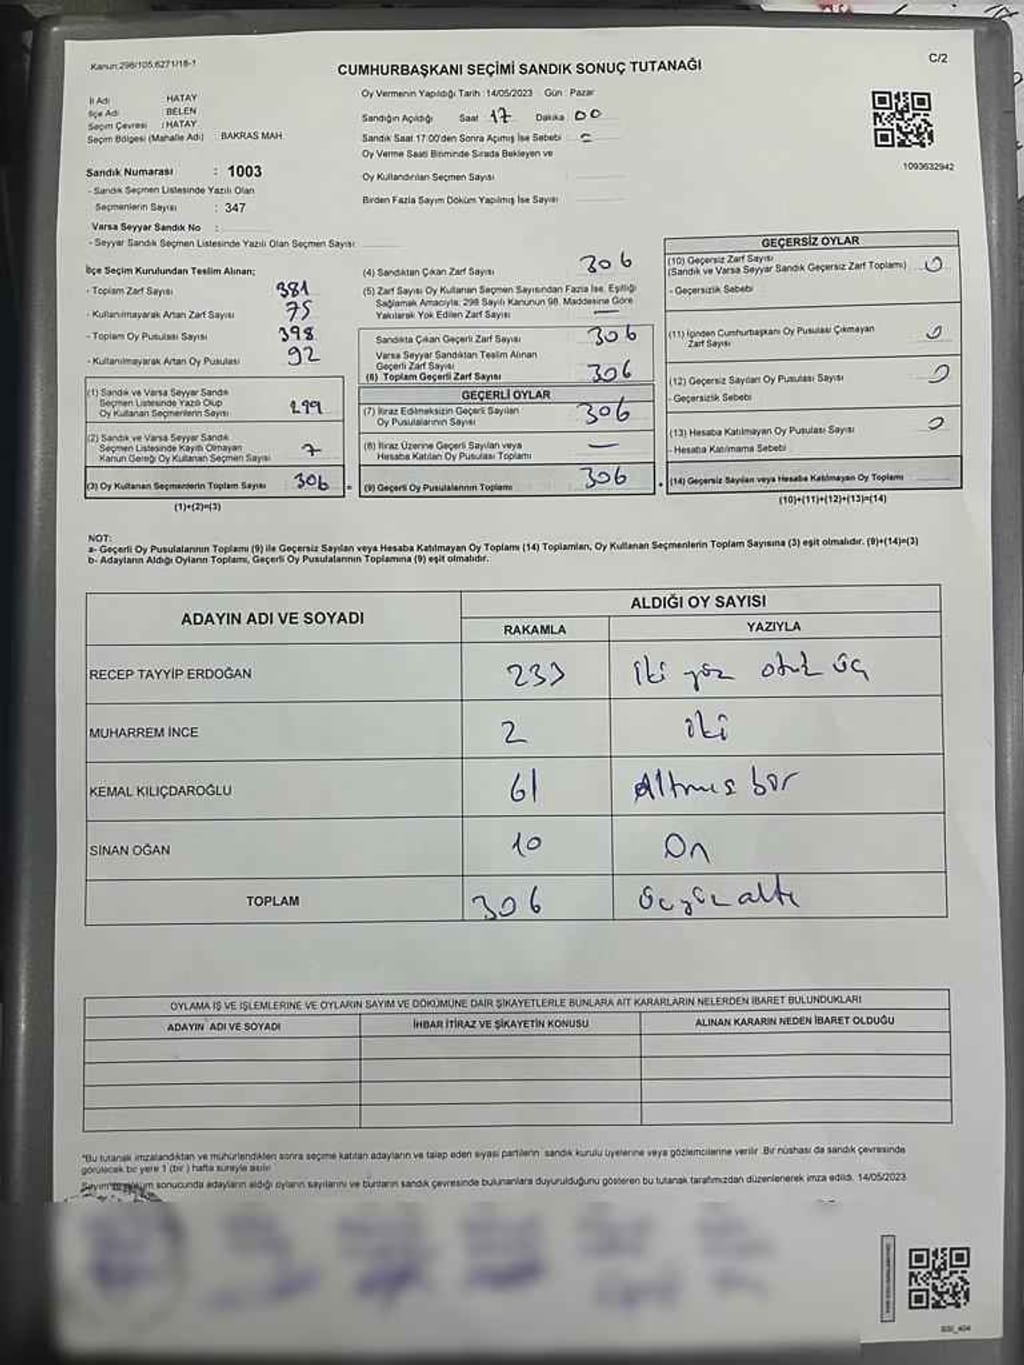 Kanun:298/105,6271/18-1
C/2
CUMHURBAŞKANI SEÇİMİ SANDIK SONUÇ TUTANAĞI
İl Adı : HATAY
İlçe Adı : BELEN
Seçim Çevresi : HATAY
Seçim Bölgesi (Mahalle Adı) : BAKRAS MAH
Sandık Numarası : 1003
- Sandık Seçmen Listesinde Yazılı Olan
Seçmenlerin Sayısı : 347
Varsa Seyyar Sandık No :
- Seyyar Sandık Seçmen Listesinde Yazılı Olan Seçmen Sayısı
Oy Vermenin Yapıldığı Tarih : 14/05/2023 Gün : Pazar
Sandığın Açıldığı Saat 17 Dakika 00
Sandık Saat 17:00'den Sonra Açılmış İse Sebebi
Oy Verme Saati Bitiminde Sırada Bekleyen ve
Oy Kullandırılan Seçmen Sayısı
Birden Fazla Sayım Döküm Yapılmış İse Sayısı
1093632942
İlçe Seçim Kurulundan Teslim Alınan;
- Toplam Zarf Sayısı 381
- Kullanılmayarak Artan Zarf Sayısı 75
- Toplam Oy Pusulası Sayısı 398
- Kullanılmayarak Artan Oy Pusulası 92
(1) Sandık ve Varsa Seyyar Sandık
Seçmen Listesinde Yazılı Olup
Oy Kullanan Seçmenlerin Sayısı 299
(2) Sandık ve Varsa Seyyar Sandık
Seçmen Listesinde Kayıtlı Olmayan
Kanun Gereği Oy Kullanan Seçmen Sayısı 7
(3) Oy Kullanan Seçmenlerin Toplam Sayısı 306
(1)+(2)=(3)
(4) Sandıktan Çıkan Zarf Sayısı 306
(5) Zarf Sayısı Oy Kullanan Seçmen Sayısından Fazla İse, Eşitliği
Sağlamak Amacıyla; 298 Sayılı Kanunun 98. Maddesine Göre
Yakılarak Yok Edilen Zarf Sayısı —
Sandıkta Çıkan Geçerli Zarf Sayısı 306
Varsa Seyyar Sandıktan Teslim Alınan
Geçerli Zarf Sayısı
(6) Toplam Geçerli Zarf Sayısı 306
GEÇERLİ OYLAR
(7) İtiraz Edilmeksizin Geçerli Sayılan
Oy Pusulalarının Sayısı 306
(8) İtiraz Üzerine Geçerli Sayılan veya
Hesaba Katılan Oy Pusulası Toplamı —
= (9) Geçerli Oy Pusulalarının Toplamı 306
GEÇERSİZ OYLAR
(10) Geçersiz Zarf Sayısı
(Sandık ve Varsa Seyyar Sandık Geçersiz Zarf Toplamı) 0
- Geçersizlik Sebebi
(11) İçinden Cumhurbaşkanı Oy Pusulası Çıkmayan
Zarf Sayısı 0
(12) Geçersiz Sayılan Oy Pusulası Sayısı 0
- Geçersizlik Sebebi
(13) Hesaba Katılmayan Oy Pusulası Sayısı 0
- Hesaba Katılmama Sebebi
(14) Geçersiz Sayılan veya Hesaba Katılmayan Oy Toplamı
(10)+(11)+(12)+(13)=(14)
NOT:
a- Geçerli Oy Pusulalarının Toplamı (9) ile Geçersiz Sayılan veya Hesaba Katılmayan Oy Toplamı (14) Toplamları, Oy Kullanan Seçmenlerin Toplam Sayısına (3) eşit olmalıdır. (9)+(14)=(3)
b- Adayların Aldığı Oyların Toplamı, Geçerli Oy Pusulalarının Toplamına (9) eşit olmalıdır.
ADAYIN ADI VE SOYADI
ALDIĞI OY SAYISI
RAKAMLA YAZIYLA
RECEP TAYYİP ERDOĞAN 233 iki yüz otuz üç
MUHARREM İNCE 2 iki
KEMAL KILIÇDAROĞLU 61 Altmış bir
SİNAN OĞAN 10 On
TOPLAM 306 üçyüz altı
OYLAMA İŞ VE İŞLEMLERİNE VE OYLARIN SAYIM VE DÖKÜMÜNE DAİR ŞİKAYETLERLE BUNLARA AİT KARARLARIN NELERDEN İBARET BULUNDUKLARI
ADAYIN ADI VE SOYADI İHBAR İTİRAZ VE ŞİKAYETİN KONUSU ALINAN KARARIN NEDEN İBARET OLDUĞU
*Bu tutanak imzalandıktan ve mühürlendikten sonra seçime katılan adayların ve talep eden siyasi partilerin sandık kurulu üyelerine veya gözlemcilerine verilir. Bir nüshası da sandık çevresinde
görülecek bir yere 1 (bir) hafta süreyle asılır.
sonucunda adayların aldığı oyların sayılarını ve bunların sandık çevresinde bulunanlara duyurulduğunu gösteren bu tutanak tarafımızdan düzenlenerek imza edildi. 14/05/2023